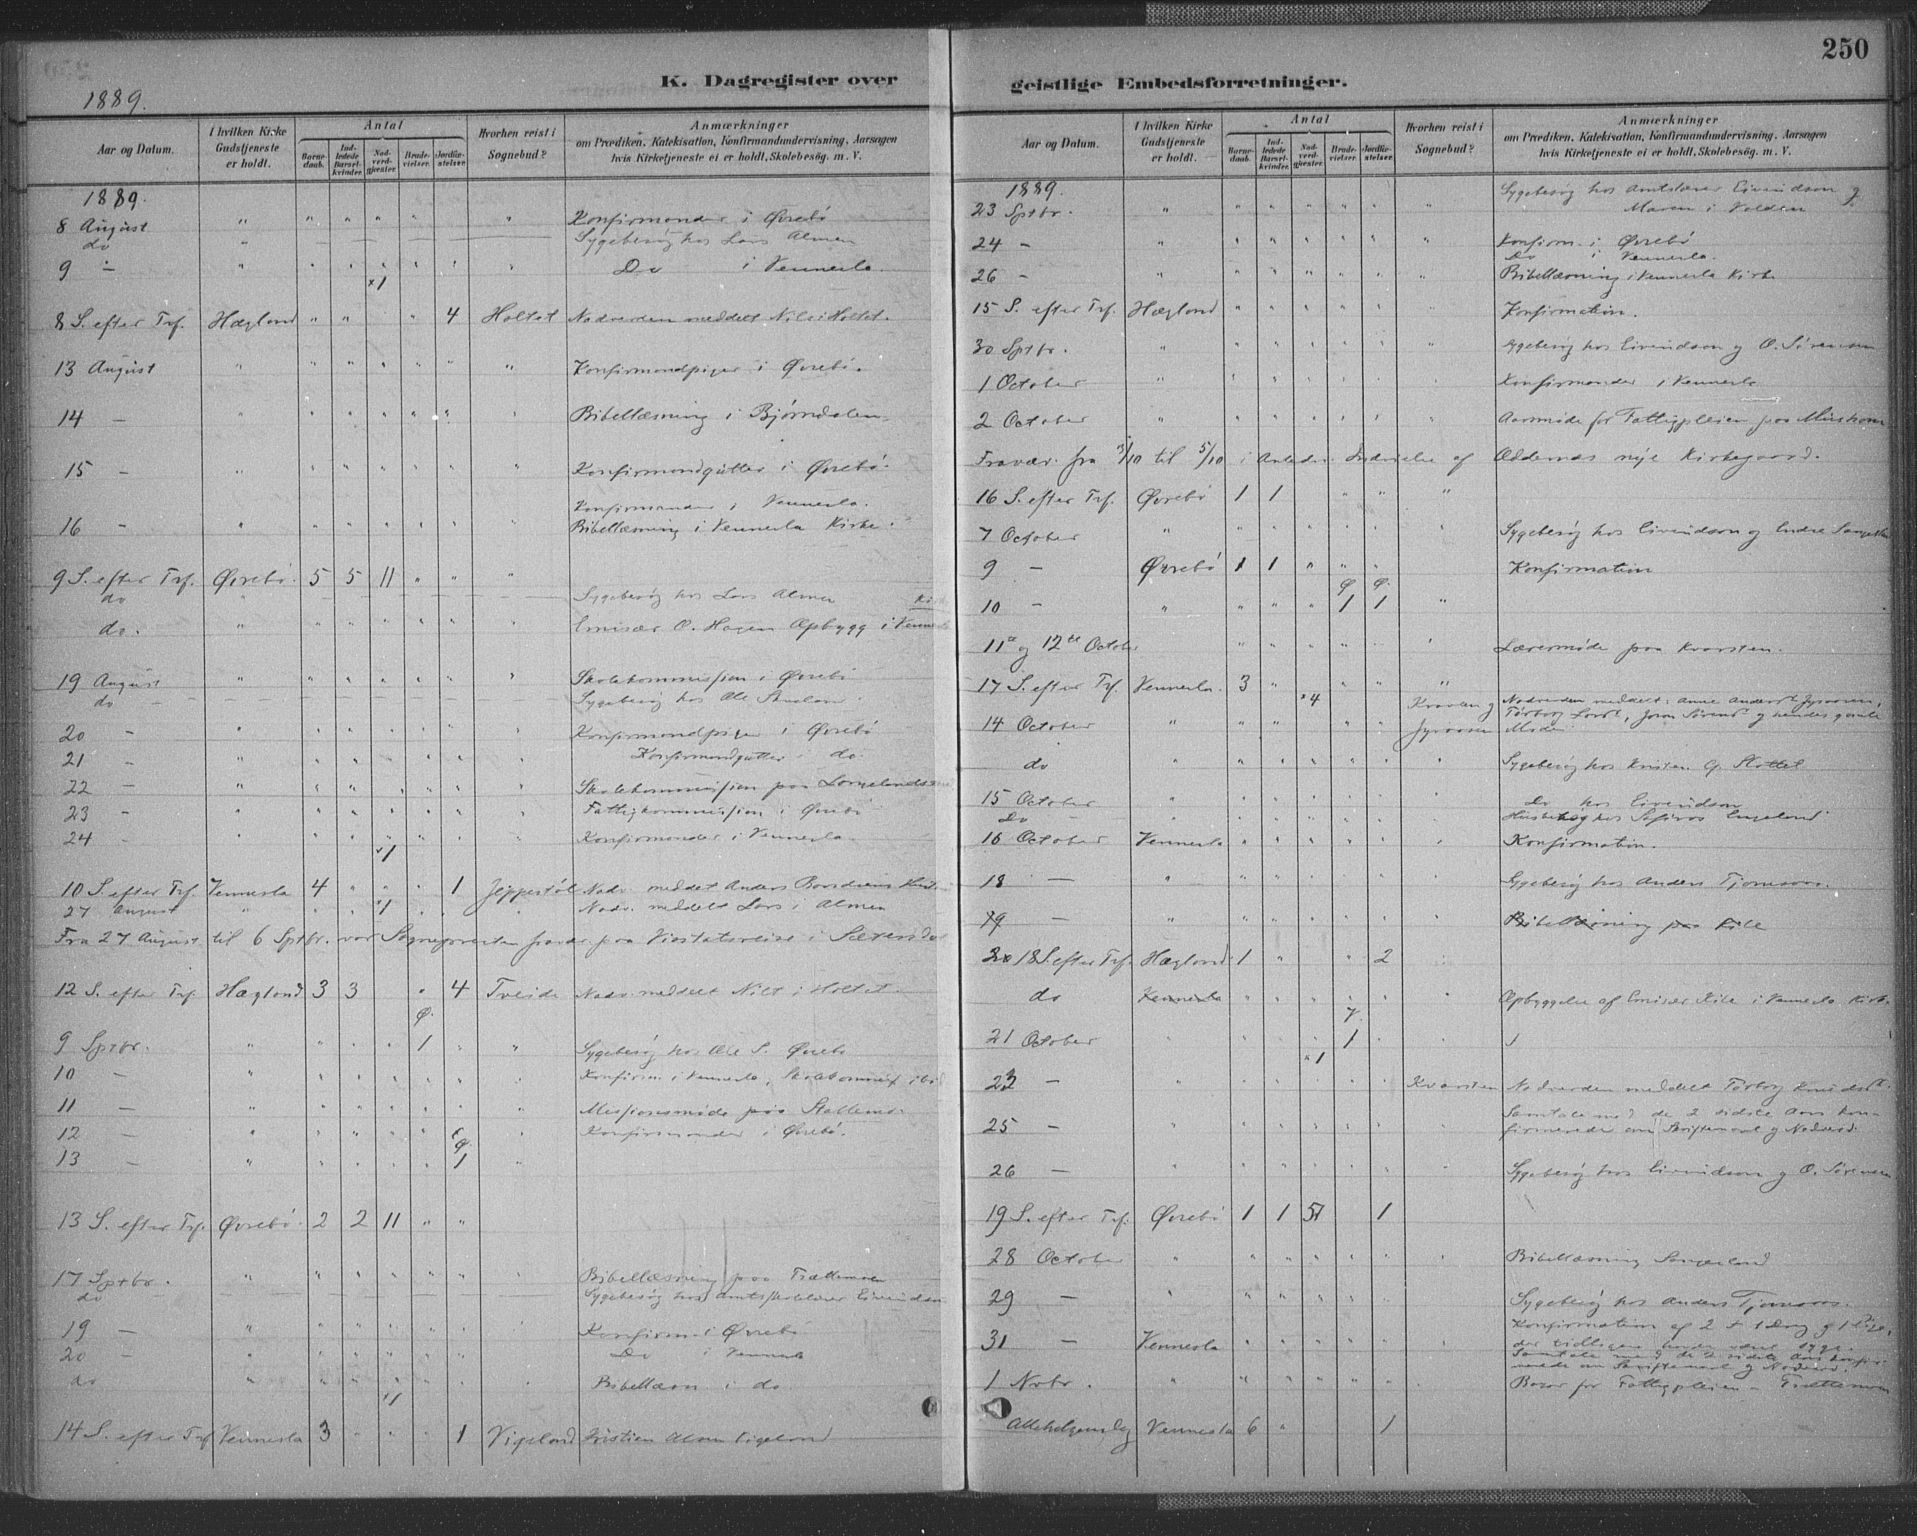 250
K. Dagregister over
1889.
Aar og Datum. I hvilken Kirke Gudstjeneste er holdt. Antal Barnedaab. Indledede Barselkvinder. Nadverdgjester. Brudevielser. Jordfæstelser. Hvorhen reist i Sognebud? Anmærkninger om Prædiken, Katekisation, Konfirmandundervisning, Aarsagen hvis Kirketjeneste ei er holdt, Skolebesøg. m. V.
1889.
8 August " " " " " " Konfirmander i Øvrebø
do " Sygebesøg hos Lars Almen
9 - " " " " " " Do i Vennesla.
x1
8 S. efter Trf. Hægland " " " 4 Holtet Nadverden meddelt Nils i Holtet.
13 August " " " " " " " Konfirmandpiger i Øvrebø.
14 - " " " " " " " Bibellæsning i Bjørndalen
15 - " " " " " " " Konfirmandgutter i Øvrebø.
Konfirmander i Vennesla.
16 - " " " " " " " Bibellæsning i Vennesla Kirke.
9 S. efter Trf. Øvrebø. 5 5 11 " " "
do " Sygebesøg hos Lars Almen
do. " " " " " " Emisær O. Hagen Opbygg i Vennesla
19 August " " " " " " " Skolekommissjon i Øvrebø
do - Sygebesøg hos Ole
20 - " " " " " " Konfirmandpiger i Øvrebø
21 - " " " " " " " Konfirmandgutter i do.
22 - " " " " " " " Skolekommissjon paa
23 - " " " " " " " Fattigkommissjon i Øvrebø
24 - " " " " " " Konfirmander i Vennesla
x1
10 S. efter Trf. Vennesla 4 " " " 1 Jeppestøl Nadv. meddelt Anders
27 August " " " x1 " " Nadv. meddelt Lars i Almen
Fra 27 August til 6 Sptbr. var Sognepresten fravær. paa Visitatsreise i Sætersdal
12 S. efter Trf. Hægland 3 3 " 4 Tveide Nadv. meddelt Nils i Holtet.
Ø.
9 Sptbr. " " " " 1 " " Sygebesøg hos Ole S. Øvrebø
10 - " " " " " " " Konfirm. i Vennesla, Skolekommiss. ibid
11 - " " " " " " " Missjonsmøde paa
12 - " " " " " " Konfirmander i Øvrebø.
Ø.
13 - " " " " " 1 "
13 S. efter Trf. Øvrebø. 2 2 11 " "
17 Sptbr. " " " " " " " Bibellæsning paa
do Sygebesøg hos Amtsskolelærer Eivindson
19 - " " " " " " Konfirm. i Øvrebø
20 - " " " " " " Do i Vennesla
do " " " " " " Bibellæsn i do
x1
14 S. efter Trf Vennesla 3 " " " 1 Vigeland Kristien Almen Vigeland
geistlige Embedsforretninger.
Aar og Datum. I hvilken Kirke Gudstjeneste er holdt. Antal Barnedaab. Indledede Barselkvinder. Nadverdgjester. Brudevielser. Jordfæstelser. Hvorhen reist i Sognebud? Anmærkninger om Prædiken, Katekisation, Konfirmandundervisning, Aarsagen hvis Kirketjeneste ei er holdt, Skolebesøg. m. V.
1889. Sygebesøg hos Amtslærer Eivindson og
23 Sptbr. " " " " " " " Maren i Volden
24 - " " " " " " " Konfirm. i Øvrebø
Do i Vennesla.
26 - " " " " " " " Bibellæsning i Vennesla Kirke
15 S. efter Trf. Hægland " " " " " " Konfirmation.
30 Sptbr. " " " " " " " Sygebesøg hos Eivindson og O. Sørensen
1 October " " " " " " " Konfirmander i Vennesla
2 October " " " " " " " Aarsmøde for Fattigpleien paa
Fravær. fra 3/10 til 5/10 i Anledn. Indvielse af Oddernes nye Kirkegaard.
16 S. efter Trf. Øvrebø 1 1 " " "
7 October " " " " " " " Sygebesøg hos Eivindson og Endre
9 - Øvrebø 1 1 " " " Konfirmation
Ø. Ø.
10 - " " " " 1 1 "
11te og 12te October " " " " " " Lærermøde paa Kvarsten.
17 S. efter Trf. Vennesla. 3 " " " "
x4 Kvarlen og Nadverden meddelt: Anne Andersd
14 October " " " " " Torborg Larsd, Joren Sørensd og hendes gamle
Moder
do " " " " " " Sygebesøg hos Kristen G. Slottet
15 October " " " " " " Do hos Eivindson
Do - Husbesøg hos Engeland
16 October Vennesla " " " " " " Konfirmation.
18 - " " " " " " Sygebesøg hos Anders Tjomsaas.
19 - " " " " " " Bibellæsning paa Kile
20 18 S. efter Trf. Hægland 1 " " 2
do Vennesla " " " " " " Opbyggelse af Emisær Kile i Vennesla Kirke
V.
21 October " " " " 1 "
"1
22 - " " " " " Kvarsten Nadverden meddelt Torborg Knudsd.
Samtale med de 2 sidste Aars Kon-
25 - " " " " " " firmerede om Skriftemaal og Nadverd.
26 - " " " " " " Sygebesøg hos Eivindson og O. Sørensen
19 S. efter Trf. Øvrebø 1 1 51 1
28 October " " " " " " Bibellæsning
29 - " " " " " " Sygebesøg hos Anders Tjomsaas.
Konfirmation af 2 + 1 Dreng og 1 Pige,
31 - Vennesla " " " " " " der tidligere havde været syge.
Samtale med de 2 sidste Aars Konfir-
merede om Skriftemaal og Nadverd.
1 Novbr. " " " " " " Bazar for Fattigpleien
Allehelgensdag Vennesla 6 " 1